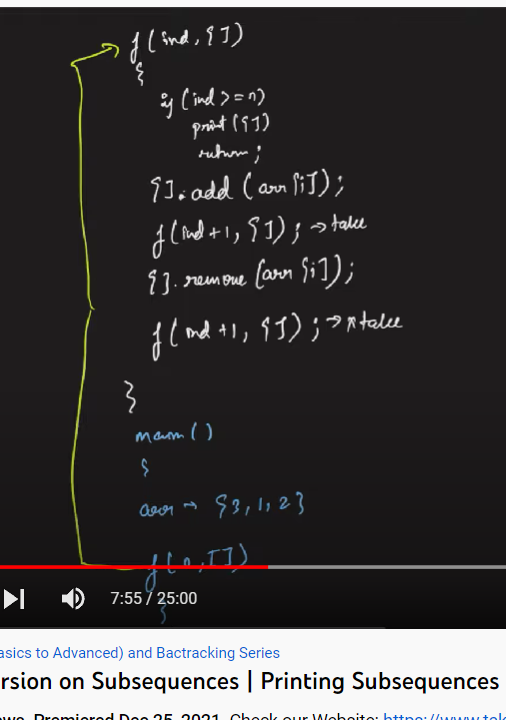 f(ind, [])
{
if (ind >= n)
print([])
return;
[].add(arr[i]);
f(ind+1, []); → take
[].remove(arr[i]);
f(ind+1, []); → not take
}
main()
{
arr → {3, 1, 2}
f(0, [])
}
7:55 / 25:00
asics to Advanced) and Bactracking Series
rsion on Subsequences | Printing Subsequences
Premiered Dec 25, 2021 Check our Website: https://www.tak